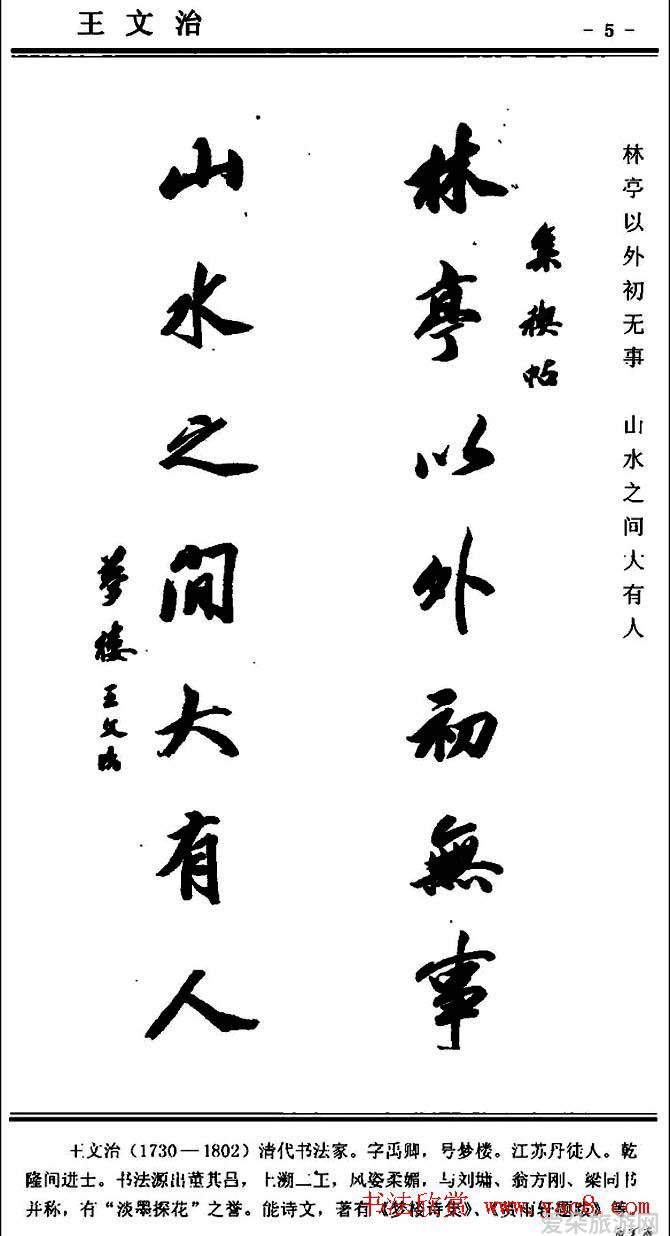 王文治
- 5 -
林亭以外初无事 山水之间大有人
集禊帖
林亭以外初無事
山水之間大有人
梦楼王文治
王文治（1730—1802）清代书法家。字禹卿，号梦楼。江苏丹徒人。乾
隆间进士。书法源出董其昌，上溯二王，风姿柔媚，与刘墉、翁方刚、梁同书
并称，有“淡墨探花”之誉。能诗文，著有《梦楼诗集》、《赏雨轩题跋》等。
书法欣赏 www.yac8.com
爱采旅游网